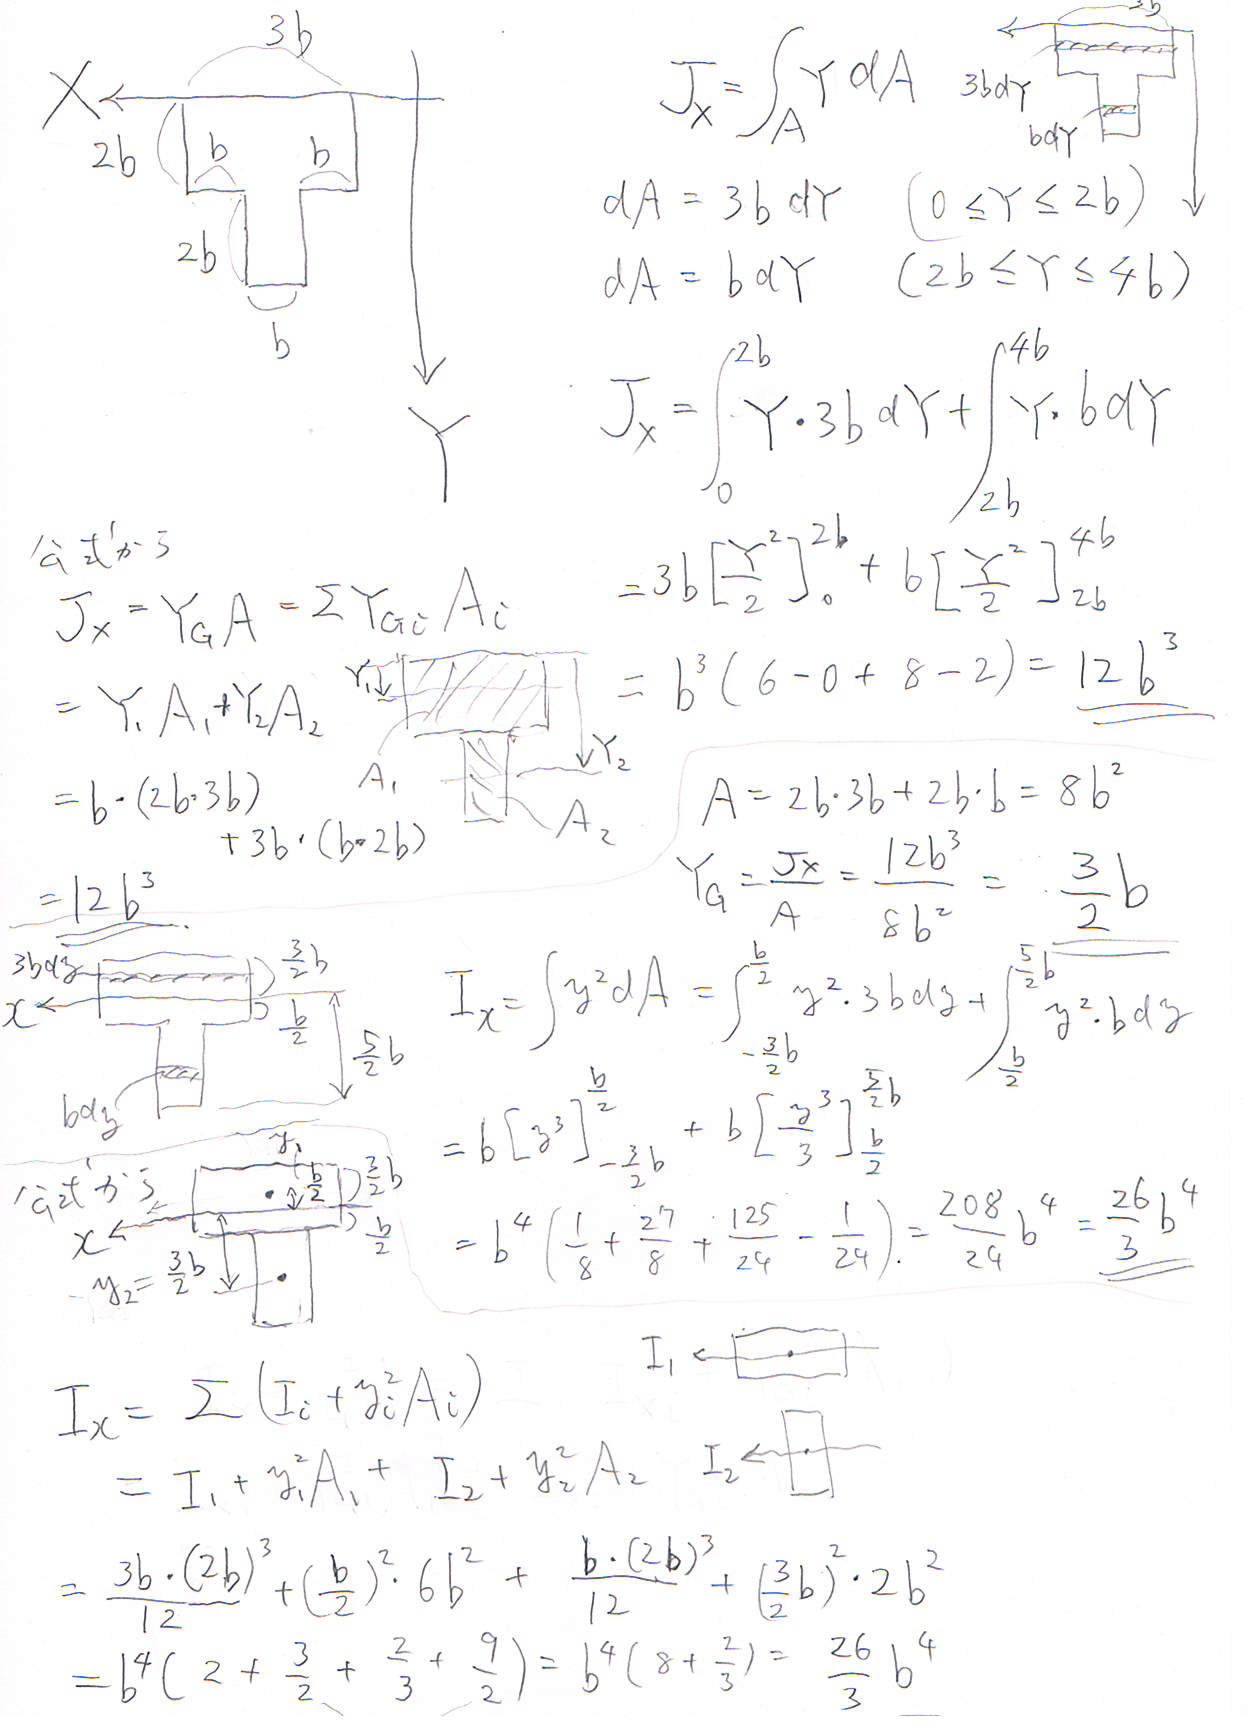 3b
X
2b
b b
2b
b
Y
J_X = ∫_A Y dA
3b
3bdY
bdY
dA = 3b dY (0 ≤ Y ≤ 2b)
dA = b dY (2b ≤ Y ≤ 4b)
J_X = ∫_0^{2b} Y・3b dY + ∫_{2b}^{4b} Y・b dY
= 3b [Y²/2]_0^{2b} + b [Y²/2]_{2b}^{4b}
= b³(6 - 0 + 8 - 2) = 12b³
公式から
J_X = Y_G A = Σ Y_{Gi} A_i
= Y₁A₁ + Y₂A₂
= b・(2b・3b)
+ 3b・(b・2b)
= 12b³
Y₁
A₁
Y₂
A₂
A = 2b・3b + 2b・b = 8b²
Y_G = J_X/A = 12b³/8b² = 3/2 b
3bdy
x
bdy
3/2 b
b/2
5/2 b
I_x = ∫y²dA = ∫_{-3/2 b}^{b/2} y²・3bdy + ∫_{b/2}^{5/2 b} y²・bdy
= b [y³]_{-3/2 b}^{b/2} + b [y³/3]_{b/2}^{5/2 b}
= b⁴(1/8 + 27/8 + 125/24 - 1/24) = 208/24 b⁴ = 26/3 b⁴
公式から
y₁
b/2
3/2 b
x
b/2
y₂ = 3/2 b
I₁
I₂
I_x = Σ(I_i + y_i² A_i)
= I₁ + y₁²A₁ + I₂ + y₂²A₂
= 3b・(2b)³/12 + (b/2)²・6b² + b・(2b)³/12 + (3/2 b)²・2b²
= b⁴(2 + 3/2 + 2/3 + 9/2) = b⁴(8 + 2/3) = 26/3 b⁴